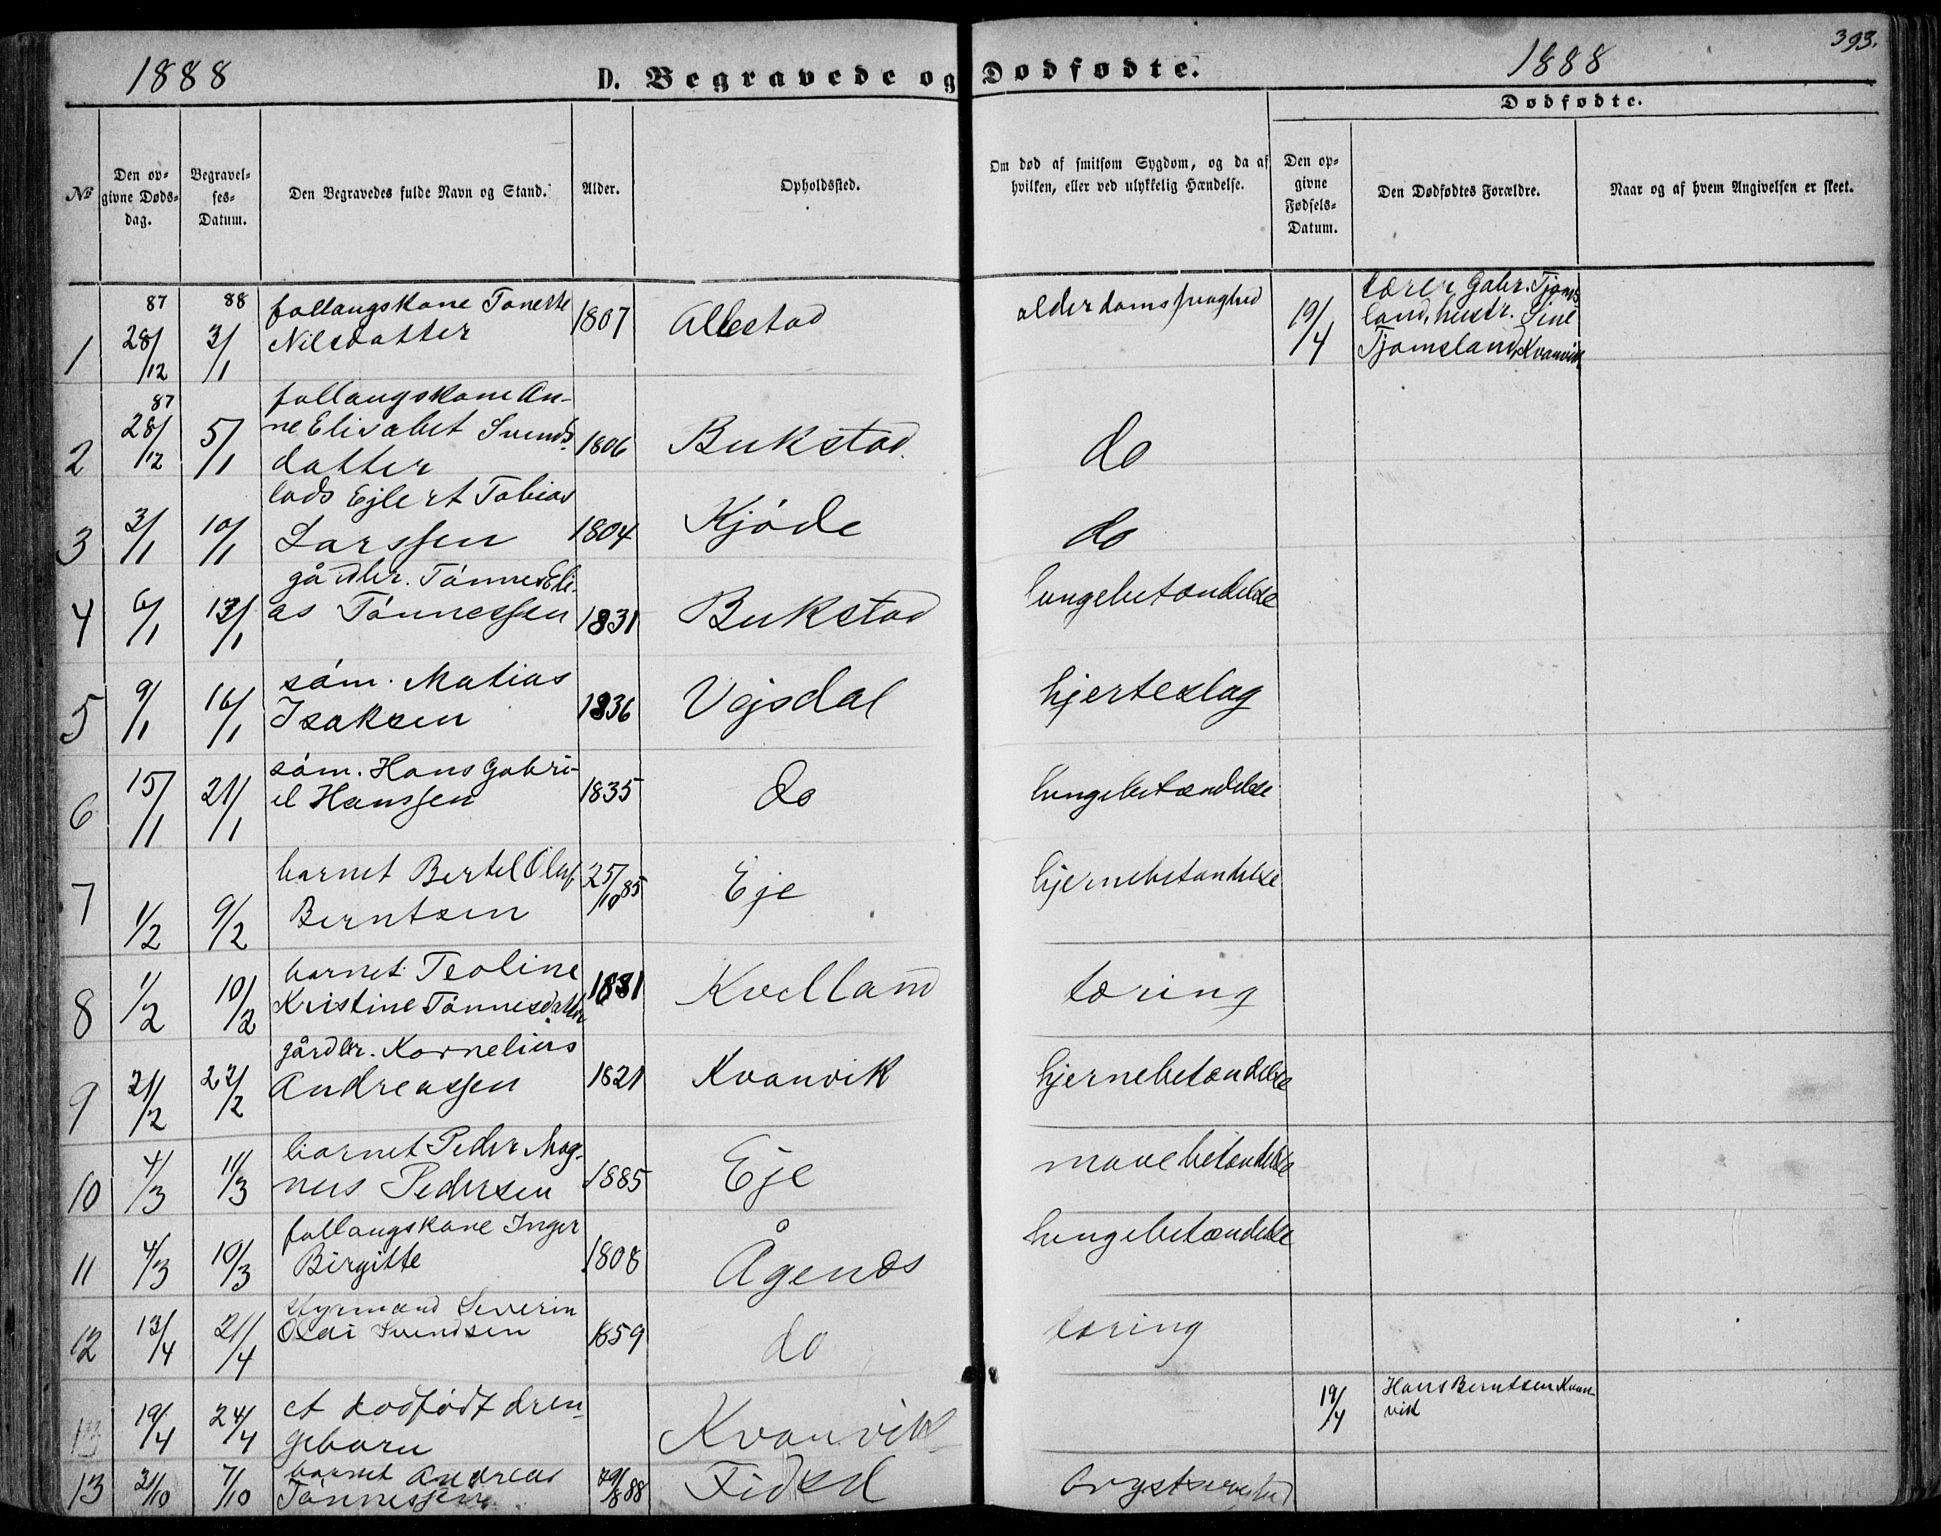 1888
D. Begravede og Dødfødte.
1888
393.
Dødfødte.
№
Den opgivne Dødsdag.
Begravelses-Datum.
Den Begravedes fulde Navn og Stand.
Alder.
Opholdssted.
Om død af smitsom Sygdom, og da af hvilken, eller ved ulykkelig Hændelse.
Den opgivne Fødsels-Datum.
Den Dødfødtes Forældre.
Naar og af hvem Angivelsen er skeet.
1 87 28/12 88 3/1 follaugskone Tonette
Nilsdatter 1807 Allestad alderdomssvaghed 19/4 lærer Gabr. Tjoms
land, hustr. Sine
Tjomsland, Kvanvik
2 87 28/12 5/1 follaugskone An-
ne Elisabet Svends
datter 1806 Bukstad do
3 3/1 10/1 lods Ejlert Tobias
Larssen 1804 Kjøde do
4 6/1 13/1 gårdbr. Tønnes Eli-
as Tønnessen 1831 Bukstad lungebetændelse
5 9/1 16/1 søm. Matias
Isaksen 1836 Vejsdal hjerteslag
6 15/1 21/1 søm. Hans Gabri-
el Hanssen 1835 do lungebetændelse
7 1/2 9/2 barnet Bertel Oluf
Berntsen 25/10 85 Eje hjernebetændelse
8 1/2 10/2 barnet Teoline
Kristine Tønnesdatter 1881 Kvelland tæring
9 21/2 27/2 gårdbr. Kornelius
Andreassen 1821 Kvanvik hjernebetændelse
10 4/3 11/3 barnet Peder Mag-
nus Pedersen 1885 Eje mavebetændelse
11 4/3 10/3 follaugskone Inger
Birgitte 1808 Ågenæs lungebetændelse
12 13/4 21/4 styrmand Severin
Olai Svendsen 1859 do tæring
13 19/4 24/4 et dødfødt dren-
gebarn Kvanvik 19/4 Hans Berntsen Kvan-
vik
13 31/10 7/10 barnet Andreas
Tønnessen 29/8 88 Fidsel brystsvaghed